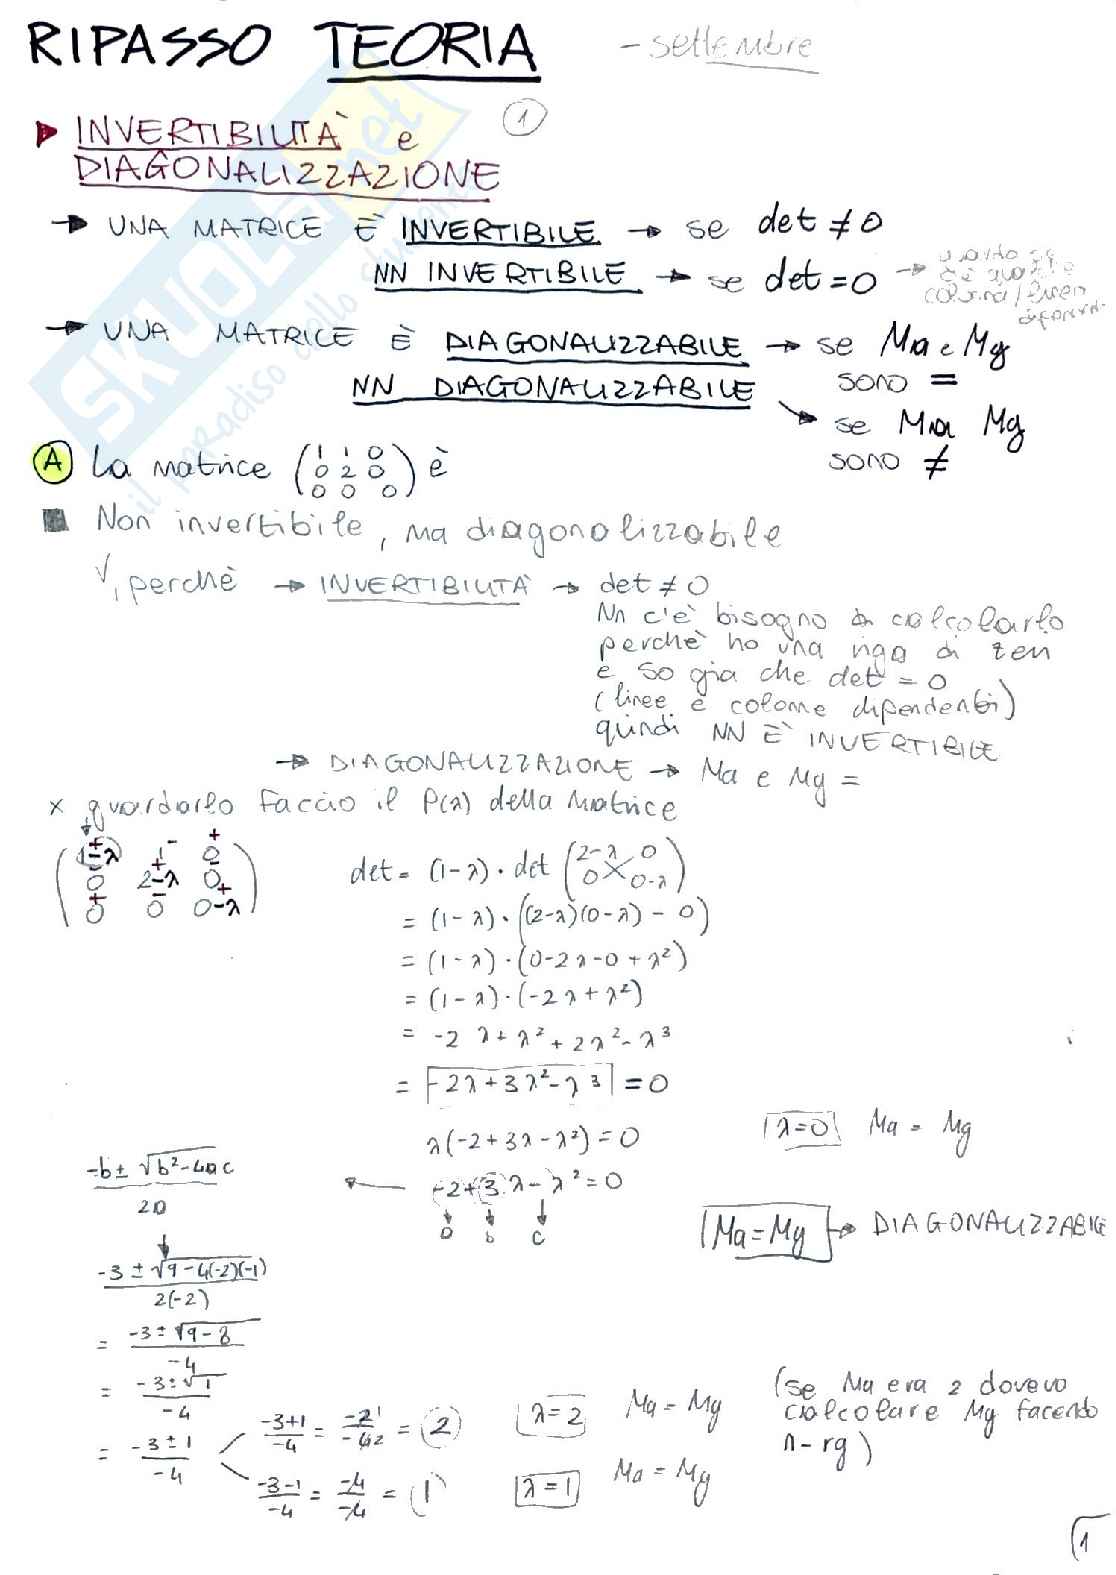 RIPASSO TEORIA - settembre
1
▶ INVERTIBILITÀ e
DIAGONALIZZAZIONE
→ UNA MATRICE È INVERTIBILE → se det ≠ 0
NN INVERTIBILE → se det = 0 →
→ UNA MATRICE È DIAGONALIZZABILE → se Ma e Mg
sono =
NN DIAGONALIZZABILE
se Ma Mg
sono ≠
SKUOLA.net
il paradiso dello studente
A La matrice (1 1 0
0 2 0
0 0 0) è
■ Non invertibile, ma diagonalizzabile
√, perchè → INVERTIBILITÀ → det ≠ 0
Nn c'è bisogno di calcolarlo
perchè ho una riga di zeri
e so già che det = 0
(linee e colonne dipendenti)
quindi NN È INVERTIBILE
→ DIAGONALIZZAZIONE → Ma e Mg =
x guardarlo faccio il P(λ) della matrice
(1-λ 1 0
0 2-λ 0
0 0 0-λ)
+ - +
- + -
+ - +
det = (1-λ) · det (2-λ 0
0 0-λ)
= (1-λ) · ((2-λ)(0-λ) - 0)
= (1-λ) · (0-2λ-0+λ²)
= (1-λ) · (-2λ+λ²)
= -2λ+λ²+2λ²-λ³
= -2λ+3λ²-λ³ = 0
λ(-2+3λ-λ²) = 0
-2+(3)λ-λ² = 0
a b c
λ=0 Ma = Mg
Ma = Mg → DIAGONALIZZABILE
-b ± √b²-4ac
2a
-3 ± √9-4(-2)(-1)
2(-2)
= -3 ± √9-8
-4
= -3 ± √1
-4
= -3 ± 1
-4
-3+1/-4 = -2/-4 2 1 = (2)
λ=2 Ma = Mg
-3-1/-4 = -4/-4 = (1)
λ=1 Ma = Mg
(se Ma era 2 dovevo
calcolare Mg facendo
n-rg)
1